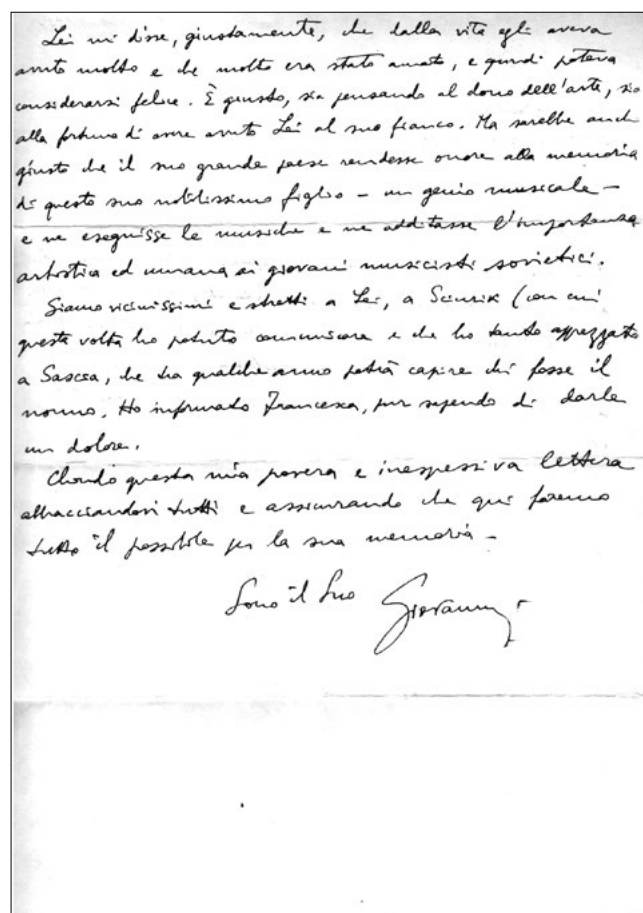 Lei mi disse, giustamente, che dalla vita egli aveva
avuto molto e che molto era stato amato, e quindi poteva
considerarsi felice. È giusto, sia pensando al dono dell'arte, sia
alla fortuna di avere avuto Lei al suo fianco. Ma sarebbe anche
giusto che il suo grande paese rendesse onore alla memoria
di questo suo nobilissimo figlio – un genio musicale –
e ne eseguisse le musiche e ne additasse l'importanza
artistica ed umana ai giovani musicisti sovietici.
Siamo vicinissimi e stretti a Lei, a Sciurik (con cui
questa volta ho potuto comunicare e che ho tanto apprezzato
a Sascia, che tra qualche anno potrà capire chi fosse il
nonno. Ho informato Francesca, pur sapendo di darle
un dolore.
Chiudo questa mia povera e inespressiva lettera
abbracciandovi tutti e assicurando che qui faremo
tutto il possibile per la sua memoria –
Sono il Suo Giovanni